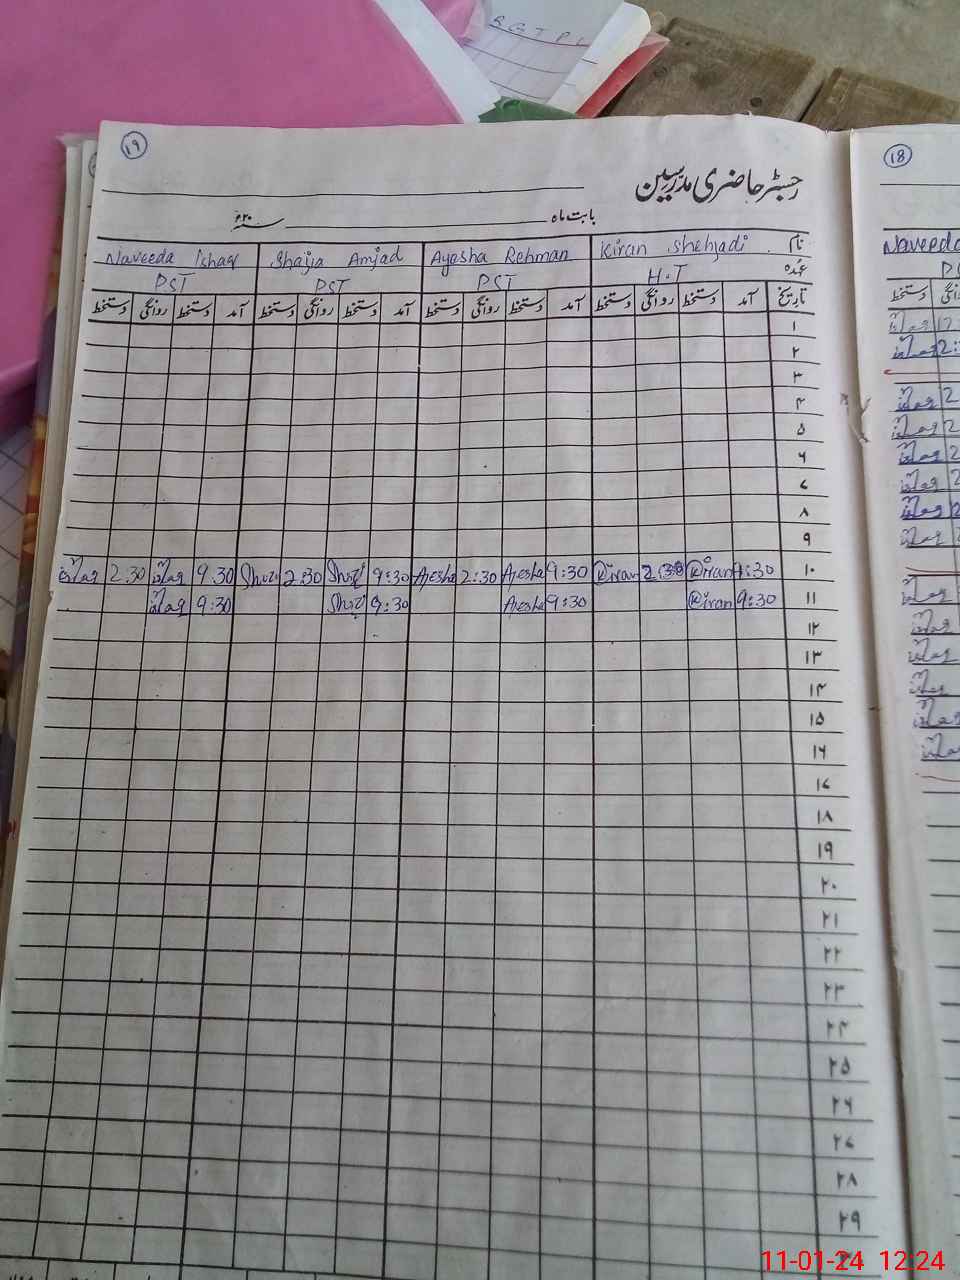 R G T P L
۱۹
18
رجسٹر حاضری مدرسین
بابت ماہ ____ سنہ ۲۰ء
نام Kiran Shehjadi Ayesha Rehman Shajia Amjad Naveeda Ishaq
Naveeda
عہدہ H.T PST PST PST
تاریخ آمد دستخط روانگی دستخط آمد دستخط روانگی دستخط آمد دستخط روانگی دستخط آمد دستخط روانگی دستخط
دستخط
۱
۲
۳
۴
۵
۶
۷
۸
۹
۱۰ 9:30 Kiran 2:30 Kiran 9:30 Ayesha 2:30 Ayesha 9:30 2:30 9:30 2:30
۱۱ 9:30 Kiran 9:30 Ayesha 9:30 9:30
۱۲
۱۳
۱۴
۱۵
۱۶
۱۷
۱۸
۱۹
۲۰
۲۱
۲۲
۲۳
۲۴
۲۵
۲۶
۲۷
۲۸
۲۹
11-01-24 12:24